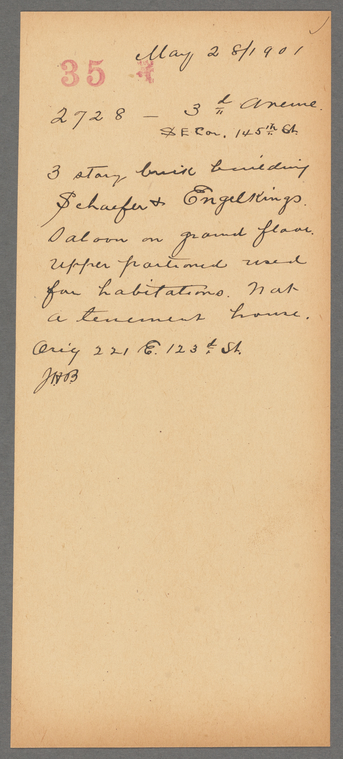 May 28/1901
35
2728 — 3d Avenue.
S E Cor. 145th St.
3 story brick building
Schaefer & Engelkings.
Saloon on ground floor.
Upper portioned used
for habitations. Not
a tenement house.
Orig 221 E. 123d St.
JHB